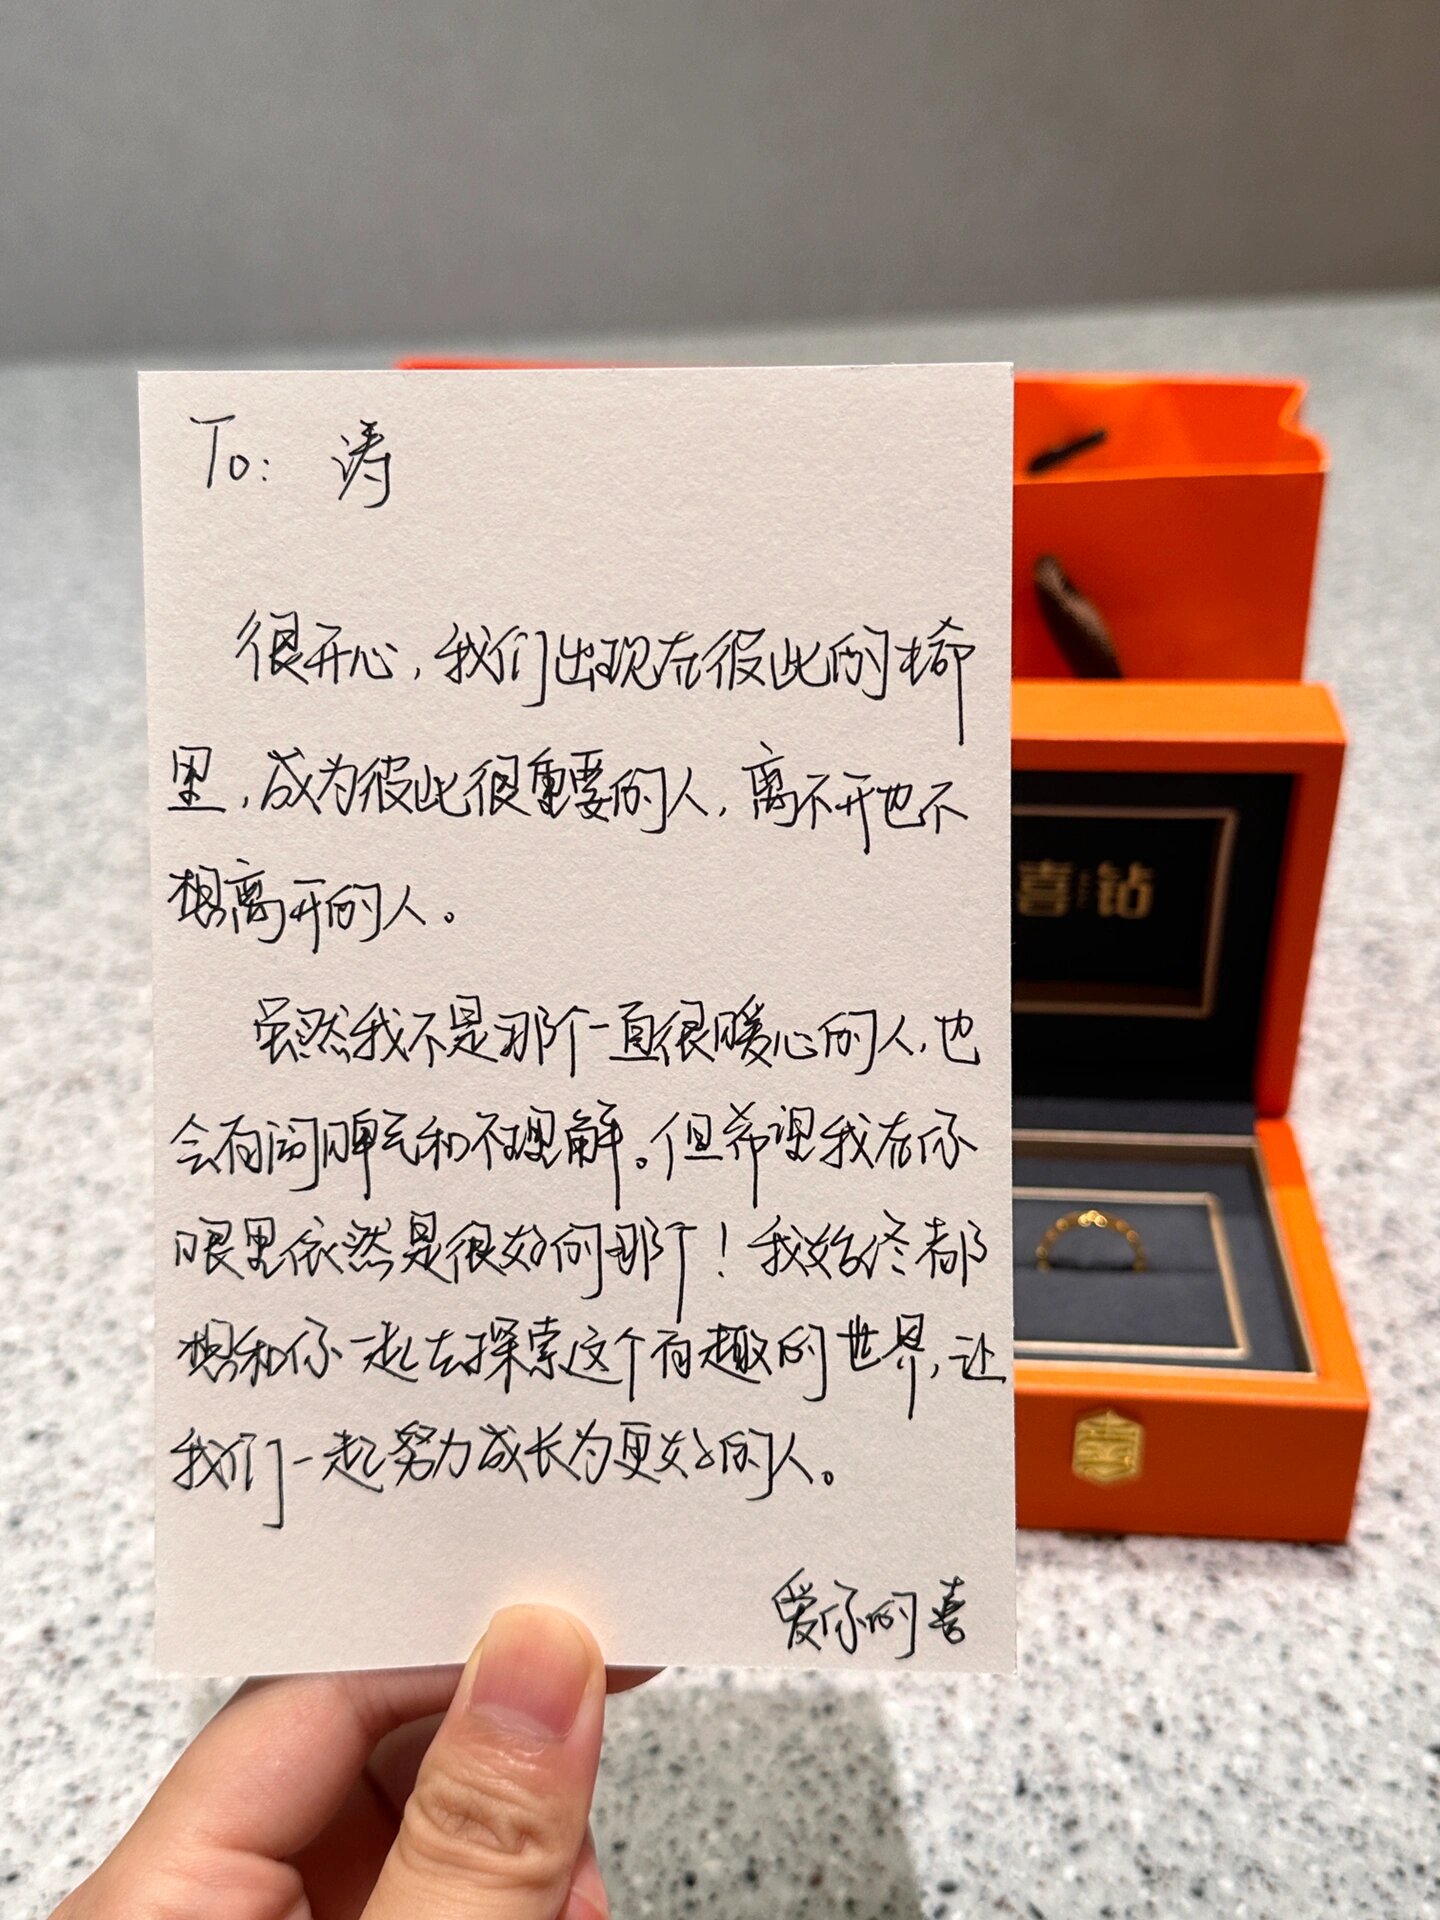 To: 涛
很开心，我们出现在彼此的
里，成为彼此很重要的人，离不开也不
想离开的人。
虽然我不是那个一直很暖心的人，也
会有闹脾气和不理解。但希望我在你
眼里依然是很好的那个！我始终都
想和你一起去探索这个有趣的世界，让
我们一起努力成长为更好的人。
爱你的喜
喜钻